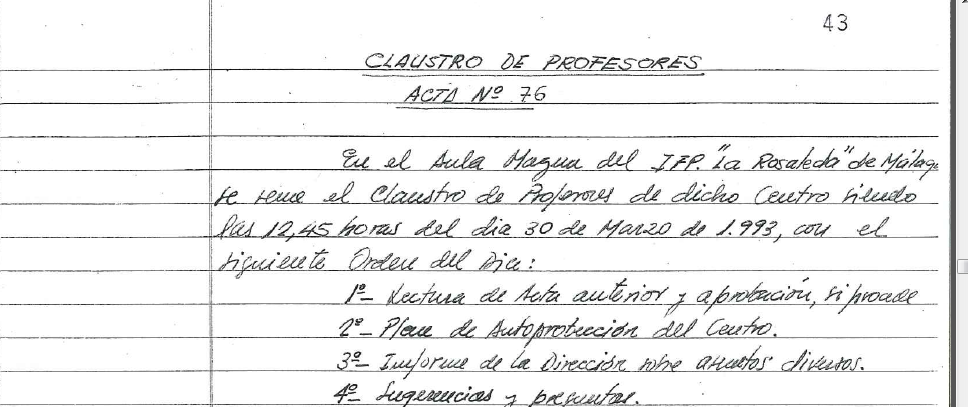 43
CLAUSTRO DE PROFESORES
ACTA Nº 76
En el Aula Magna del IFP. "La Rosaleda" de Málaga
se reune el Claustro de Profesores de dicho Centro siendo
las 12,45 horas del dia 30 de Marzo de 1.993, con el
siguiente Orden del Dia:
1º- Lectura de Acta anterior y aprobación, si procede
2º- Plan de Autoprotección del Centro.
3º- Informe de la Dirección sobre asuntos diversos.
4º- Sugerencias y preguntas.